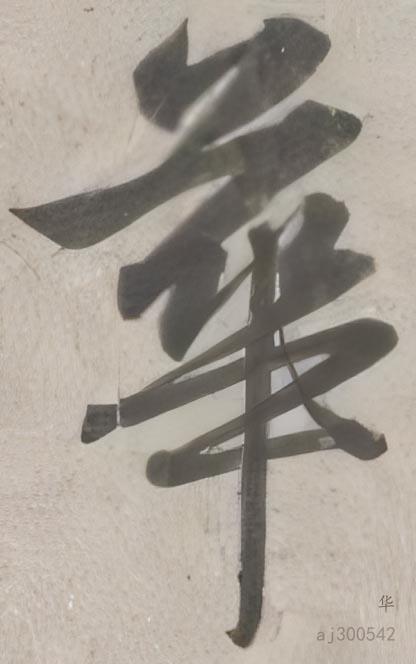 華
华
aj300542